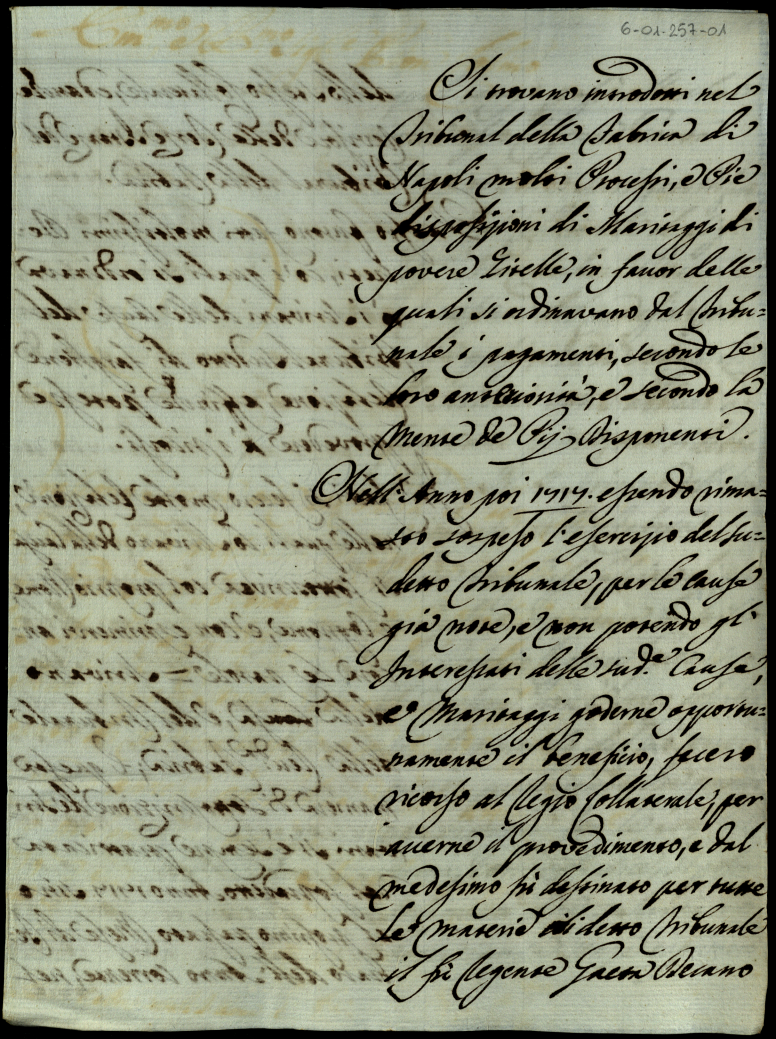 6-01-257-01
Si trovano introdotti nel
Tribunal della Fabrica di
Napoli molti Processi, e Pie
disposizioni di Maritaggi di
povere Zitelle, in favor delle
quali si ordinavano dal Tribu=
nale i pagamenti, secondo le
loro anteriorità, e secondo la
mente de Pij Disponenti.
Nell' Anno poi 1717. essendo rima=
sto sospeso l'esercizio del su=
detto Tribunale, per le cause
già note, e non potendo gl'
Interessati delle sud.e Cause,
e Maritaggi goderne opportu=
namente il beneficio, fecero
ricorso al Regio Collaterale, per
averne il provedimento, e dal
medesimo fù destinato per tutte
le materie di detto Tribunale
il fù Regente Gaeta Decano